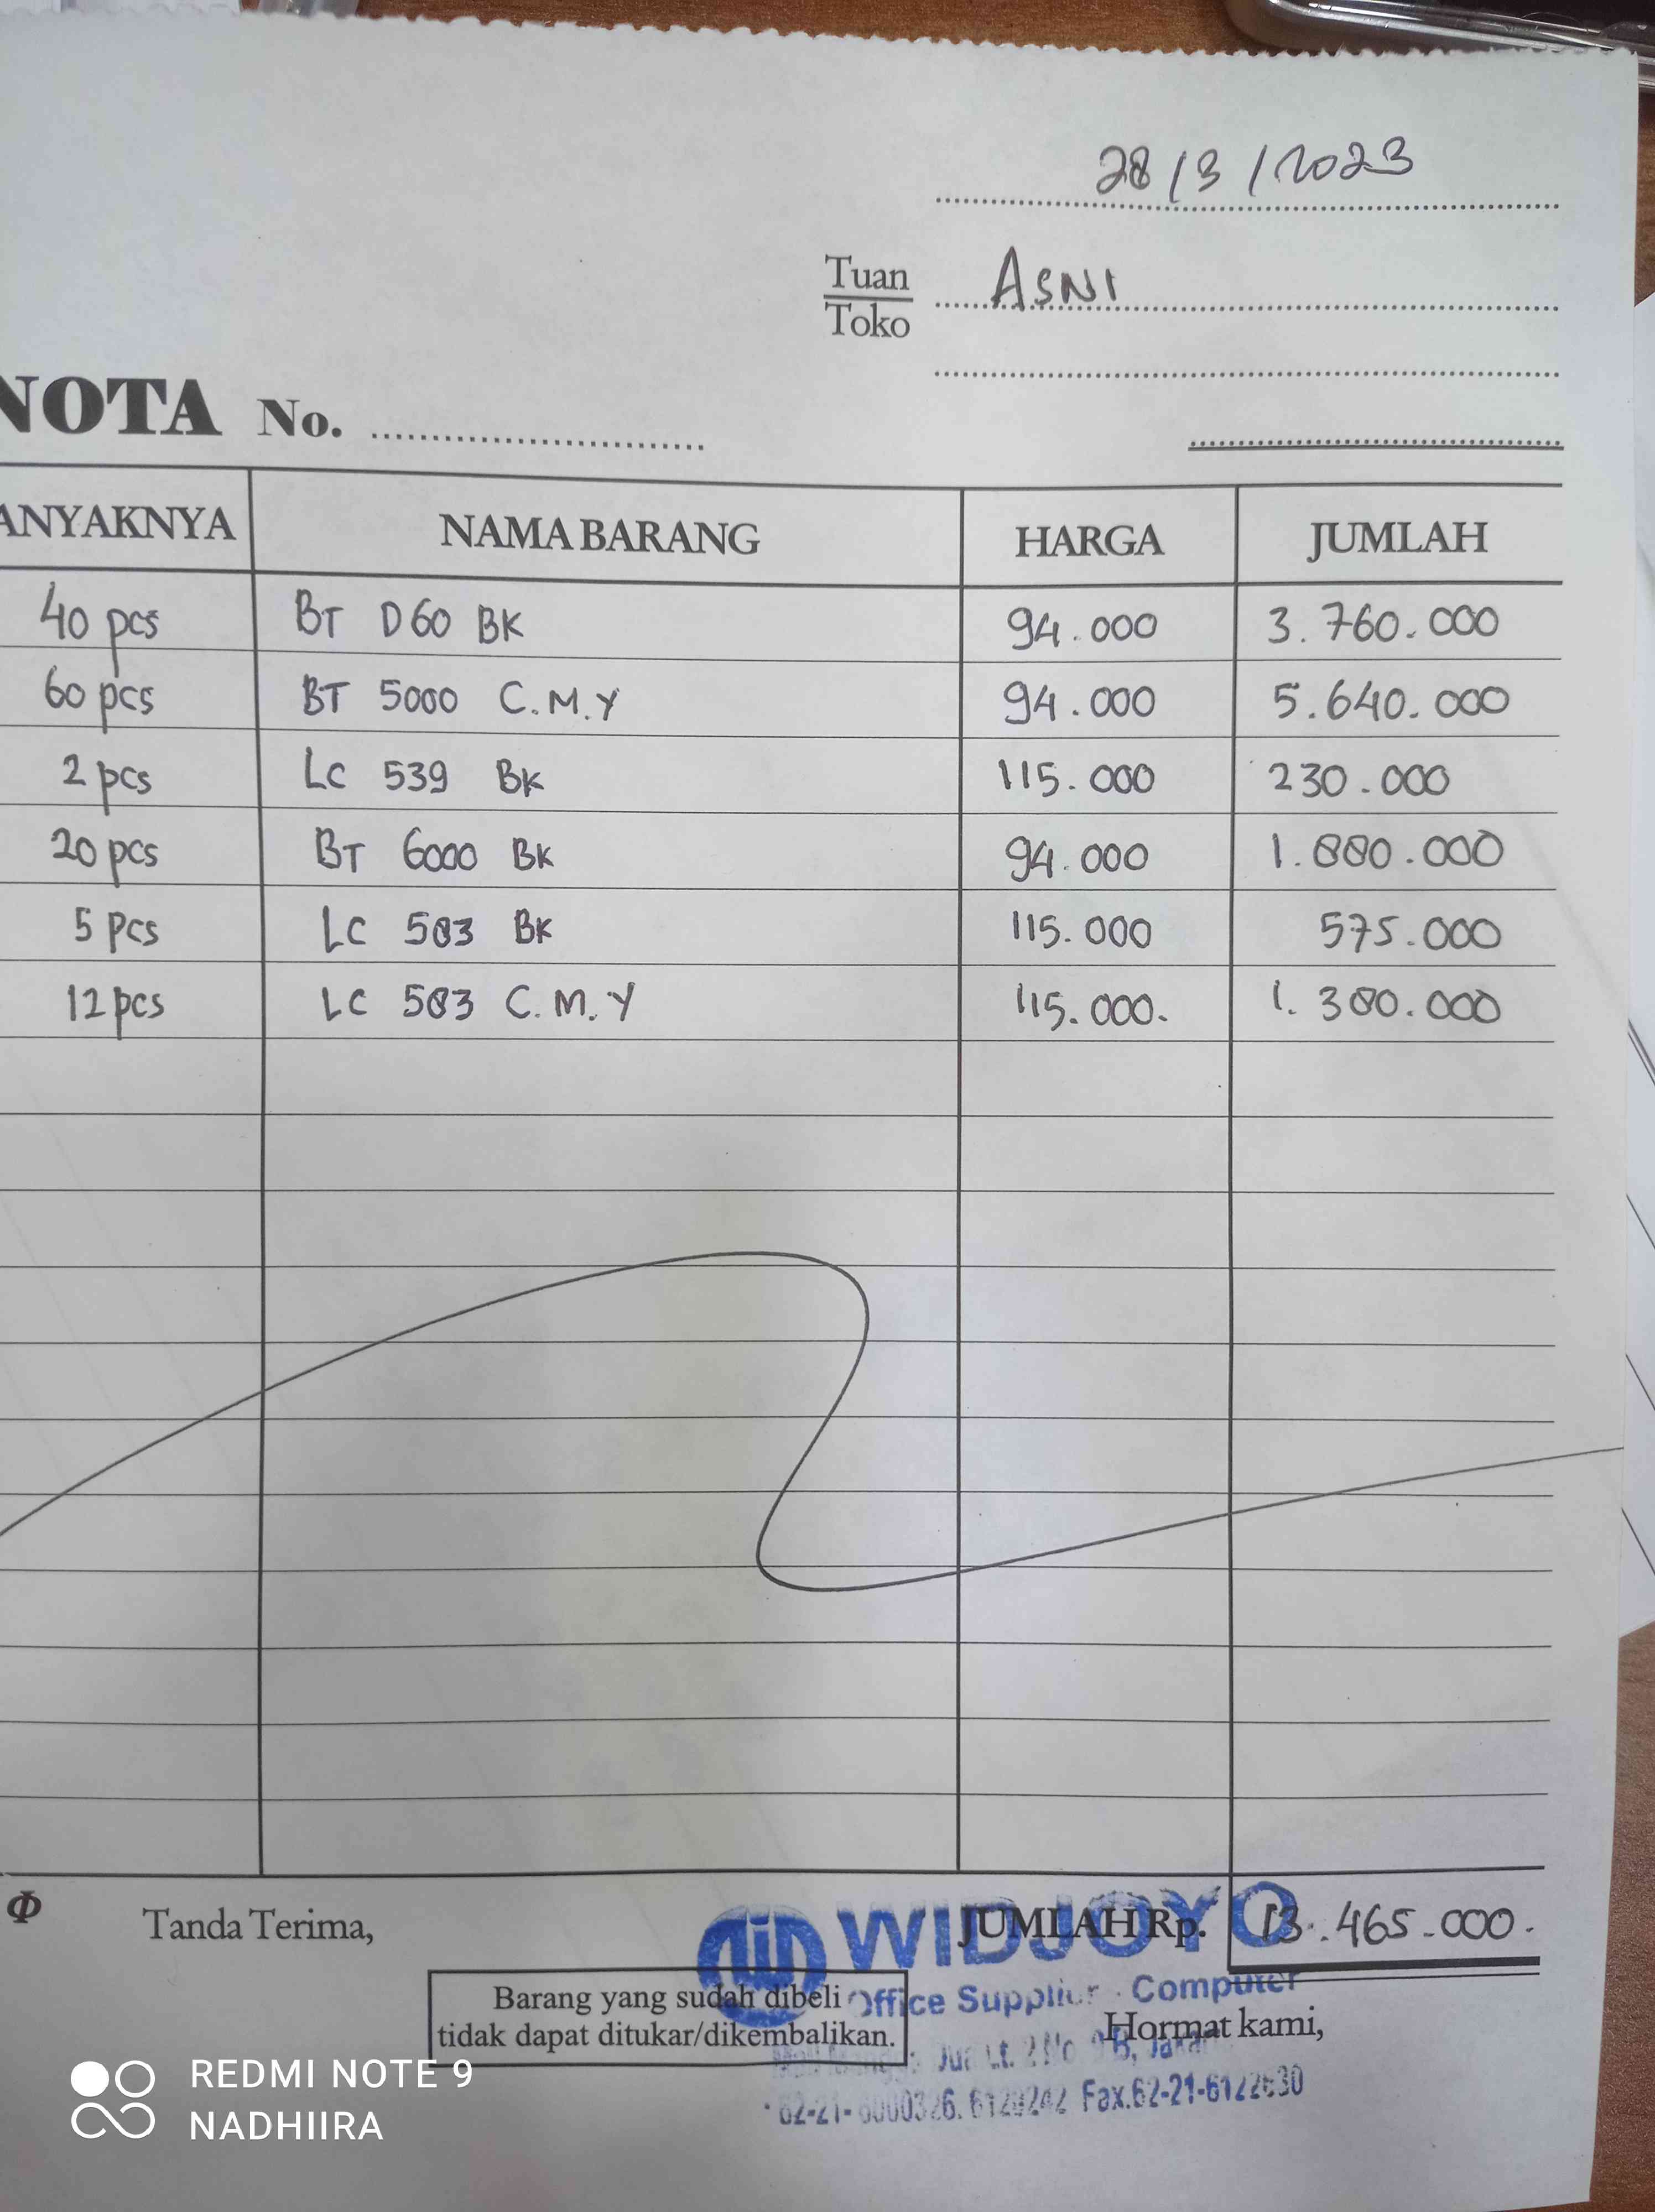 28/3/2023
Tuan
Toko
ASNI
NOTA No.
ANYAKNYA NAMA BARANG HARGA JUMLAH
40 pcs BT D60 BK 94.000 3.760.000
60 pcs BT 5000 C.M.Y 94.000 5.640.000
2 pcs LC 539 BK 115.000 230.000
20 pcs BT 6000 BK 94.000 1.880.000
5 Pcs LC 583 BK 115.000 575.000
12 pcs LC 583 C.M.Y 115.000. 1.380.000
Tanda Terima, JUMLAH Rp. 13.465.000.
WIDJOYO
Barang yang sudah dibeli
tidak dapat ditukar/dikembalikan.
Office Supplier - Computer
Hormat kami,
Fax.62-21-
REDMI NOTE 9
NADHIIRA